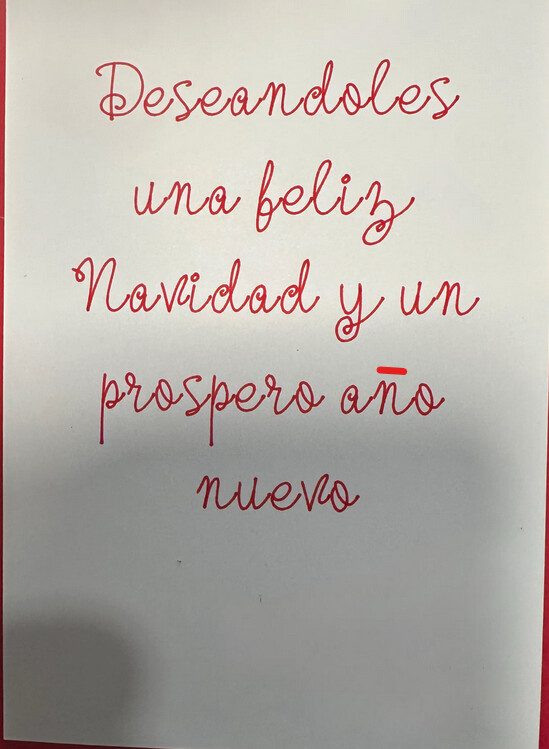 Deseandoles
una feliz
Navidad y un
prospero año
nuevo